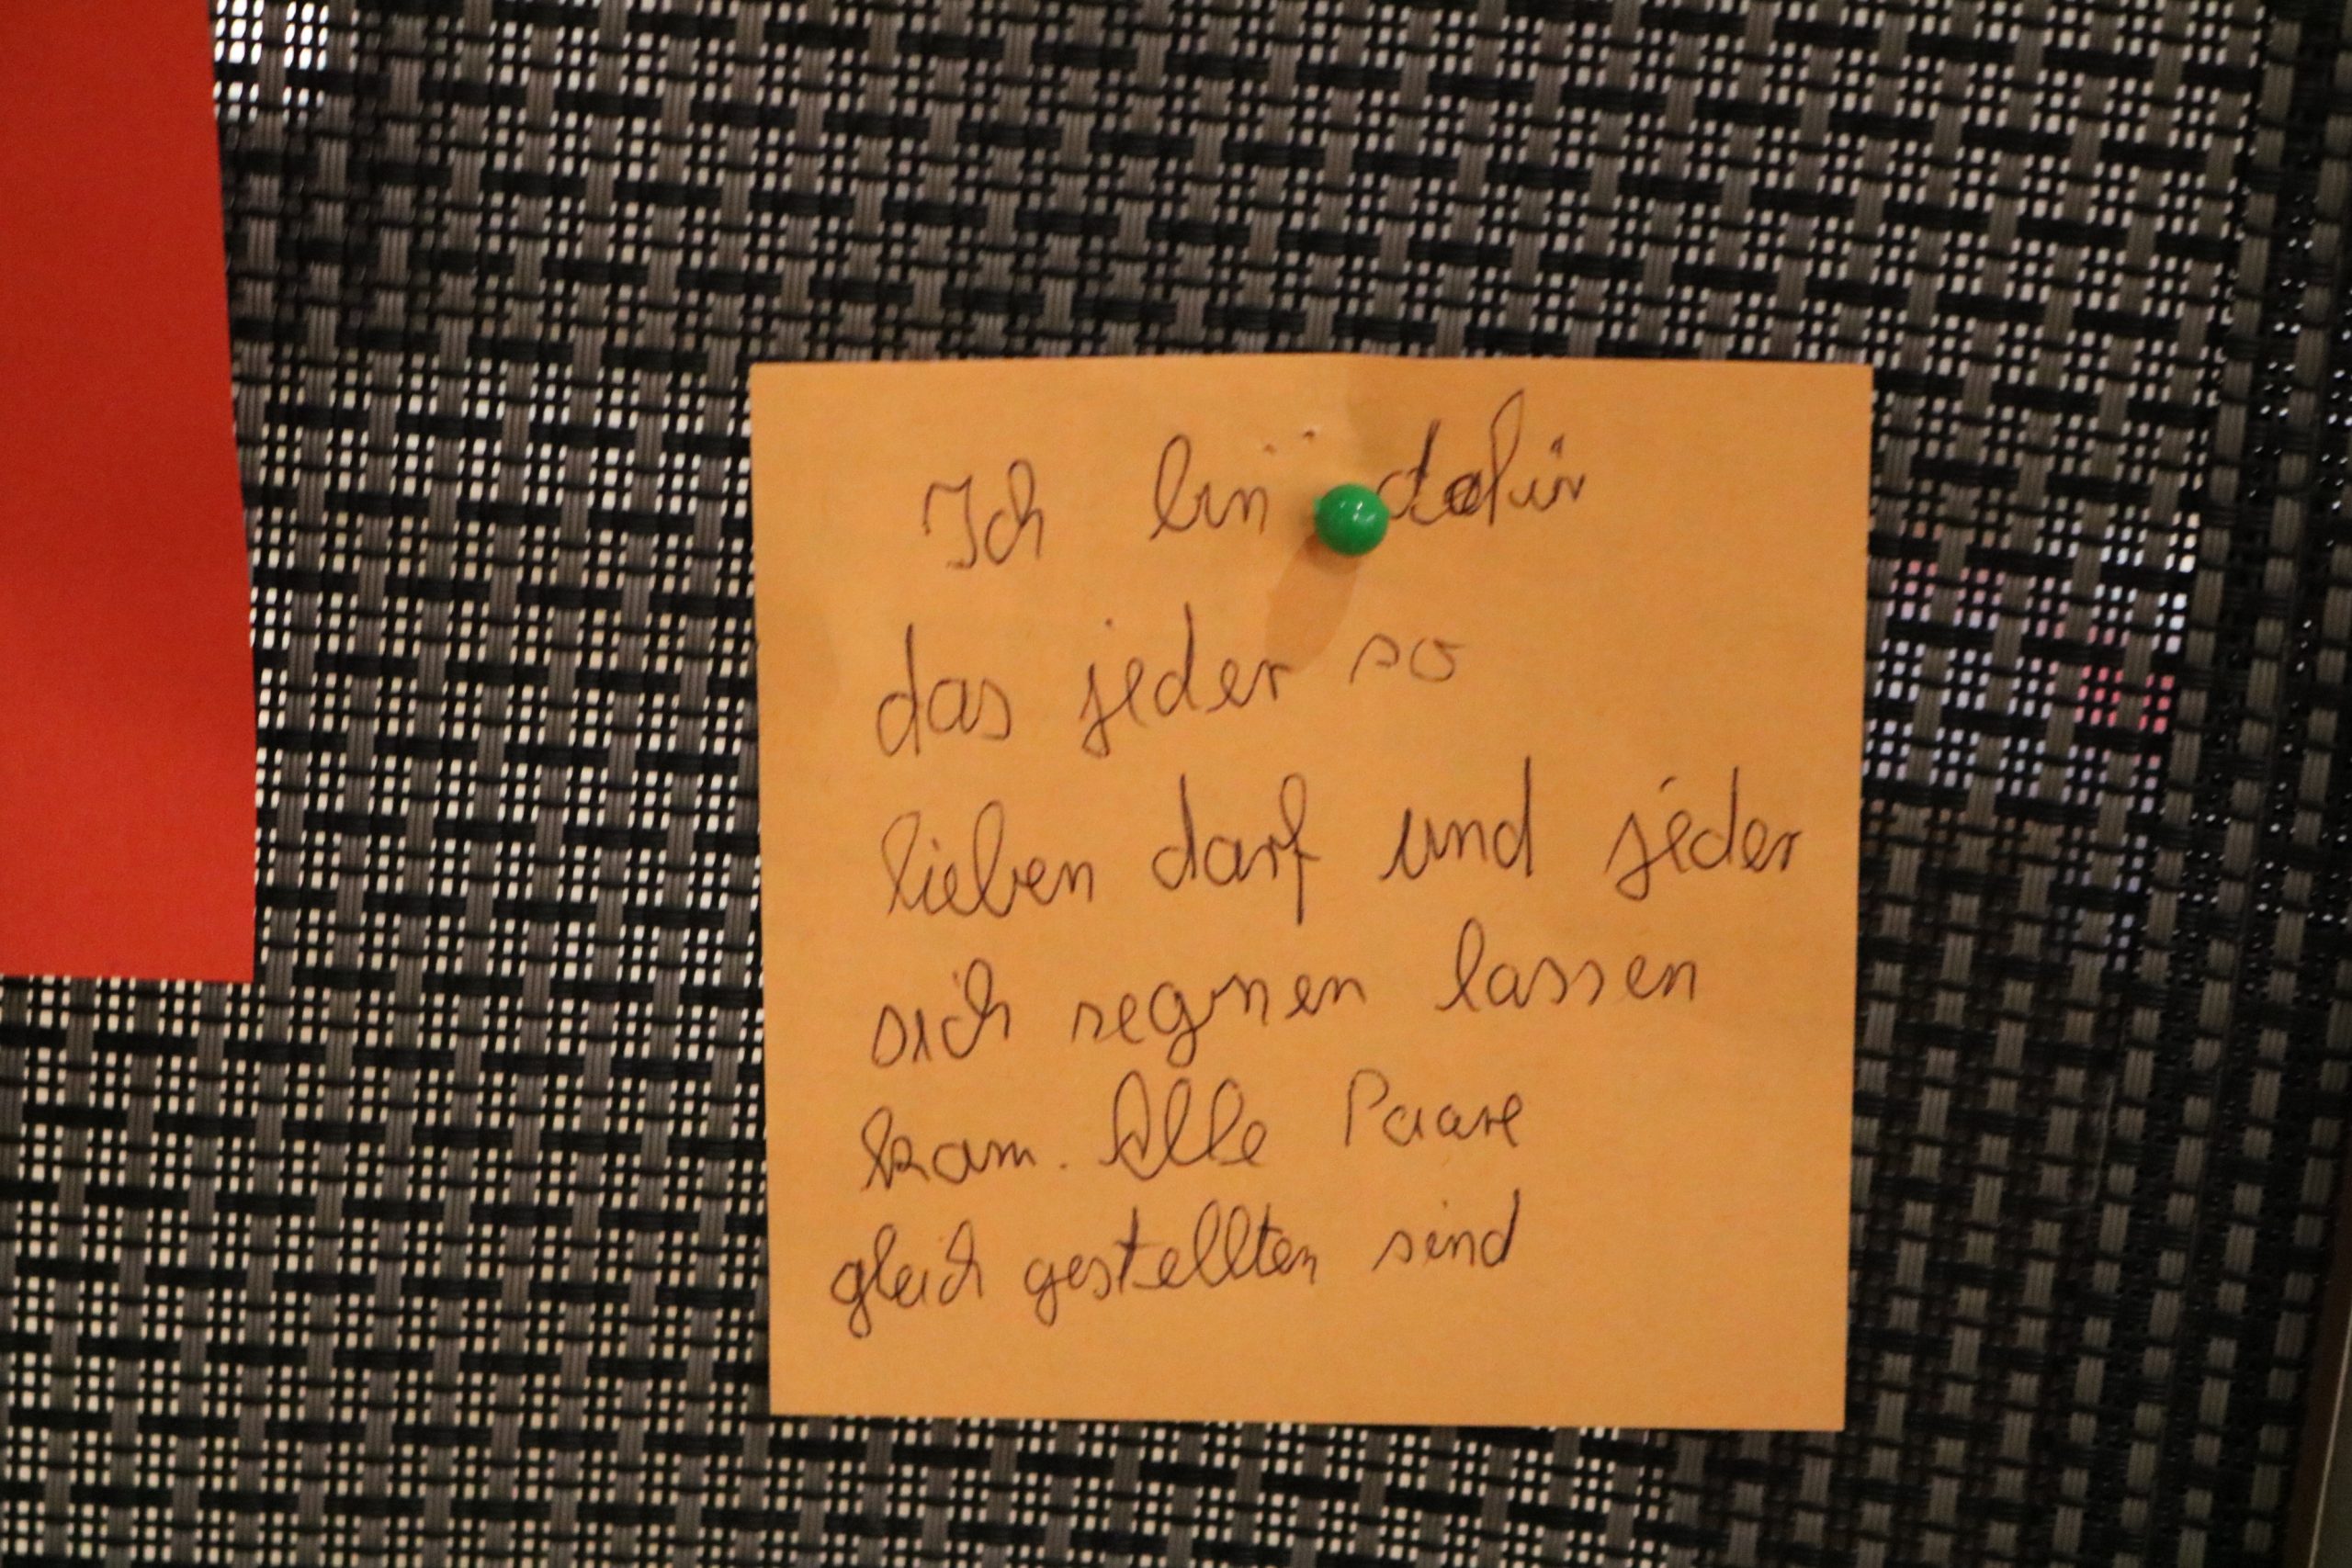 Ich bin dafür
das jeder so
lieben darf und jeder
sich segnen lassen
kam. Alle Paare
gleich gestellten sind